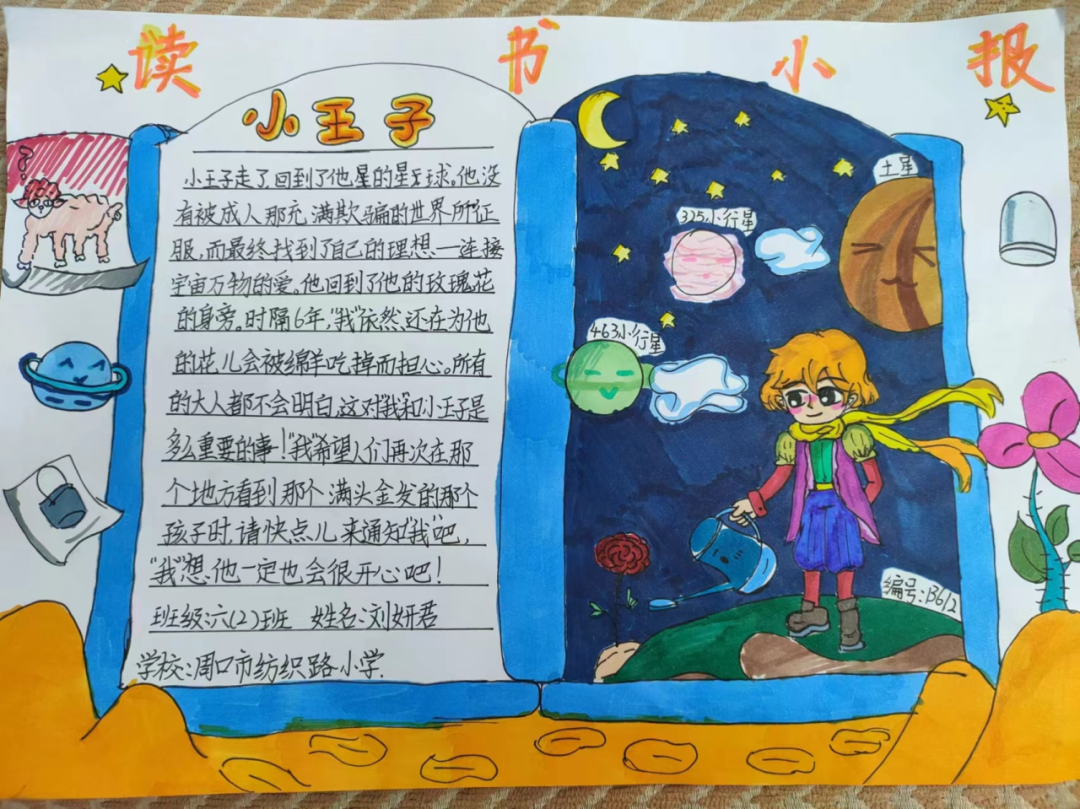 读书小报
小王子
小王子走了,回到了他星的星球。他没
有被成人那充满欺骗的世界所征
服,而最终找到了自己的理想—连接
宇宙万物的爱。他回到了他的玫瑰花
的身旁。时隔6年,“我”依然还在为他
的花儿会被绵羊吃掉而担心。所有
的大人都不会明白,这对“我”和小王子是
多么重要的事!“我”希望人们再次在那
个地方看到那个满头金发的那个
孩子时,请快点儿来通知“我”吧,
“我”想,他一定也会很开心吧!
班级:六(2)班 姓名:刘妍君
学校:周口市纺织路小学.
土星
325小行星
463小行星
编号:B612
?